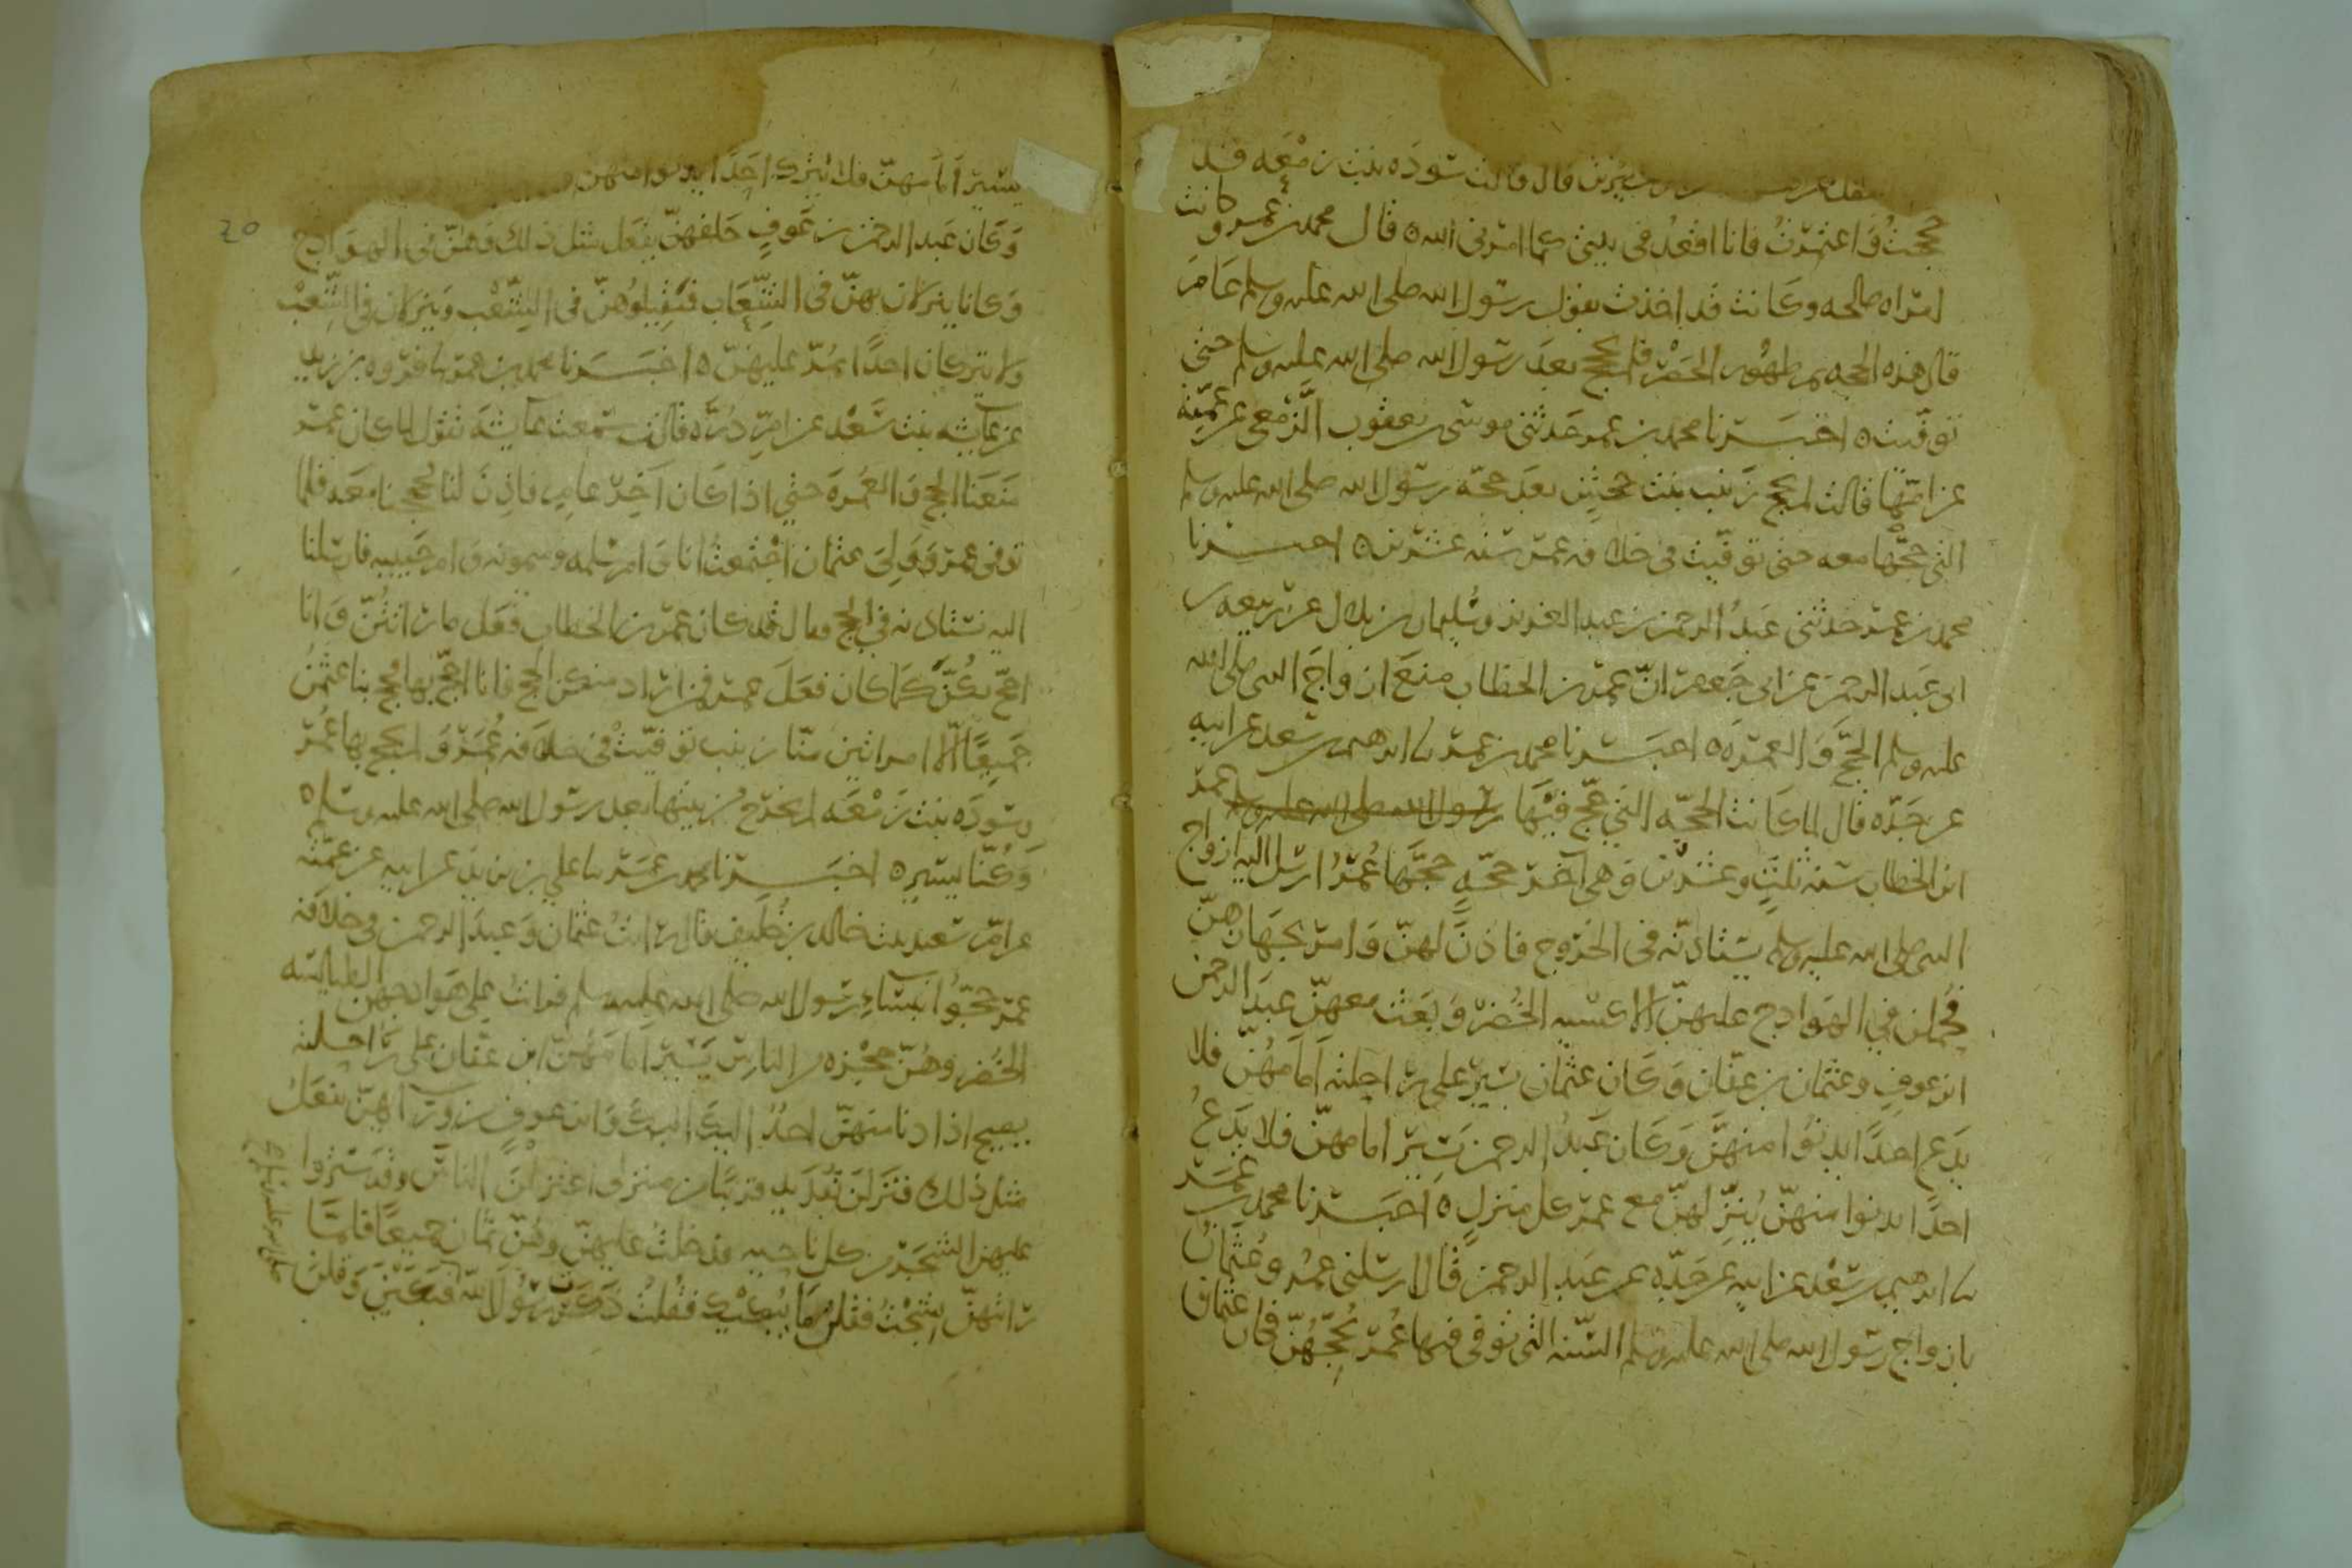 سيرين قال قالت سودة بنت زمعه قد
حججتُ وَاعتمرتُ فانا اقعد في بيتي كما امرني الله ه قال محمد بن عمر وكانت
امراه صالحه وكانت قد اخذت بقول رسول الله صلى الله عليه وسلم عَامَ
قال هذه الحجه ثم ظهُور الحُصْر فلم تحج بعدَ رسول الله صلى الله عليه وسلم حتى
توفّيت ه اخبَــرنا محمد بن عمر حَدثني موسى بن يعقوب الزَّمعي عن عمّته
عن امّها قالت لم تحج زينب بنت جحشٍ بعدَ حجّة رسُول الله صلى الله عليه وسلم
التي حجّتها معه حتى توفّيت في خلافه عمر سنه عشرين ه اخبــرنا
محمد بن عمر حدثني عَبدُ الرحمن بن عبد العزيز وسُليمان بن بلال عن ربيعه بن
ابي عَبد الرحمن عن ابي جَعفر انّ عمر بن الخطاب منعَ ازواجَ النبي صلى الله
عليه وسلم الحجَّ وَالعمرَه ه اخبَــرنا محمد بن عمر نا ابرهيم بن سعد عن ابيه
عن جَدّه قال لما كَانت الحجّه التي حجّ فيها رسول الله صلى الله عليه وسلم عمر
ابن الخطاب سَنه ثلثٍ وعشرين وَهي آخر حجّهٍ حجَّها عُمرُ ارسَل اليه ازواج
النبي صلى الله عليه وسلم يستاذنّه في الخروج فاذنَ لهنّ وَامر بجهازهنّ
فحُملن في الهوادج عليهنّ الاكسيه الخُضر وَبَعث معهنّ عبدَ الرحمن
ابن عوفٍ وعثمان بن عفّان وَكان عثمان يسيرُ على راحلته اَمامَهُنّ فلا
يدَع احدًا يدنُوا منهنّ وَكان عَبدُ الرحمن يَسير امامهنّ فلا يَدَعُ
احدًا يدنوا منهنّ يُنزِّلهنّ مع عمرَ كل منزلٍ ه اخبَــرنا محمد بن عمــر
نا ابرهيم بن سَعْد عن ابيه عن جَدّه عن عَبدِ الرحمن قال ارسلني عمرُ وعُثمانُ
بازواج رسول الله صلى الله عليه وسلم السَّنه التي توفى فيها عُمرُ نُحجِّهُنّ فكان عثمان
يسيرُ اَمامهنّ فلا يَترك احَدًا يدنوا منهن
وَكان عَبد الرحمن بن عَوفٍ خلفهنّ يفعَل مثل ذلك وَهنّ في الهوَادج
وَكانا ينزلان بهنّ في الشِّعَاب فيُقيلوهُنّ في الشِّعْب وَينزلان في الشِّعْب
وَلا يتركان احدًا يمُرّ عليهنّ ه اخبَــرنا محمد بن عمر نا فَروه بن زبيد
عن عَايشه بنت سَعْد عن امّ دُرَّه قالت سَمعت عَايشَه تقول لما كان عمر
مَنعَنا الحج وَالعُمرهَ حتى اذا كَان آخِرُ عامٍ فاذِنَ لنا فحججنا معَه فلما
توفي عمر وَوَلِيَ عثمان اجْتمعتُ انا وَام سَلمه وميمونه وَام حَبيبه فارسَلنا
اليه نستاذنه في الحج وقال قد كان عمر بن الخطاب فَعَل ما رَاتُنّ وَانا
احجّ بكُنَّ كَمَا كان فَعَلَ عمر فمن اراد منكن الحج فانا احجّ بها فحج بنا عثمنُ
جَميعًا اِلّا امراتين منّا زينب توفيّت في خلافه عُمَرَ وَلم يحج بها عُمرُ
وسَودَه بنت زَمْعَه لم تخرج من بيتها بعد رسول الله صلى الله عليه وسلم ه
وَكُنّا يسير ه اخبَــرنا محمد بن عمر نا علي بن زيد عن ابيه عن عمّته
عن امّ سعيد بنت خالد بن خُليف قال رايتُ عثمان وَعبدَ الرحمن في خلافه
عمر حجّوا بنسَاءِ رسول الله صلى الله عليه وسلم فرايت على هوادجهن الطيالسَه
الخُضر وهُنّ حَجْزه من الناسِ يَسيرُ امَامَهُنّ ابن عفّان على رَاحلته
يصيح اذا دنا منهنّ احدٌ اليكَ اليكَ وَابن عوفٍ من وَرَآئهنّ يفعَل
مثل ذلك فنزلنَ بقُدَيد قريبًا من منزلٍ اعتزلنَ الناسَ وقد سَتروا
عليهن الشجَر من كل ناحيه فدخلتُ عليهنّ وهُنّ ثمان جميعًا فلمّا
رايتهنّ نشجْتُ فقلن ما يُبكيْك فقلتُ ذكرتُ رسُولَ الله فبكَينَ وَقلنَ
صلى الله عليه وسلم